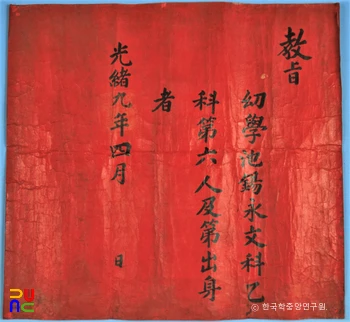 教旨
幼學池錫永文科乙
科第六人及第出身
者
光緖九年四月 日
© 한국학중앙연구원